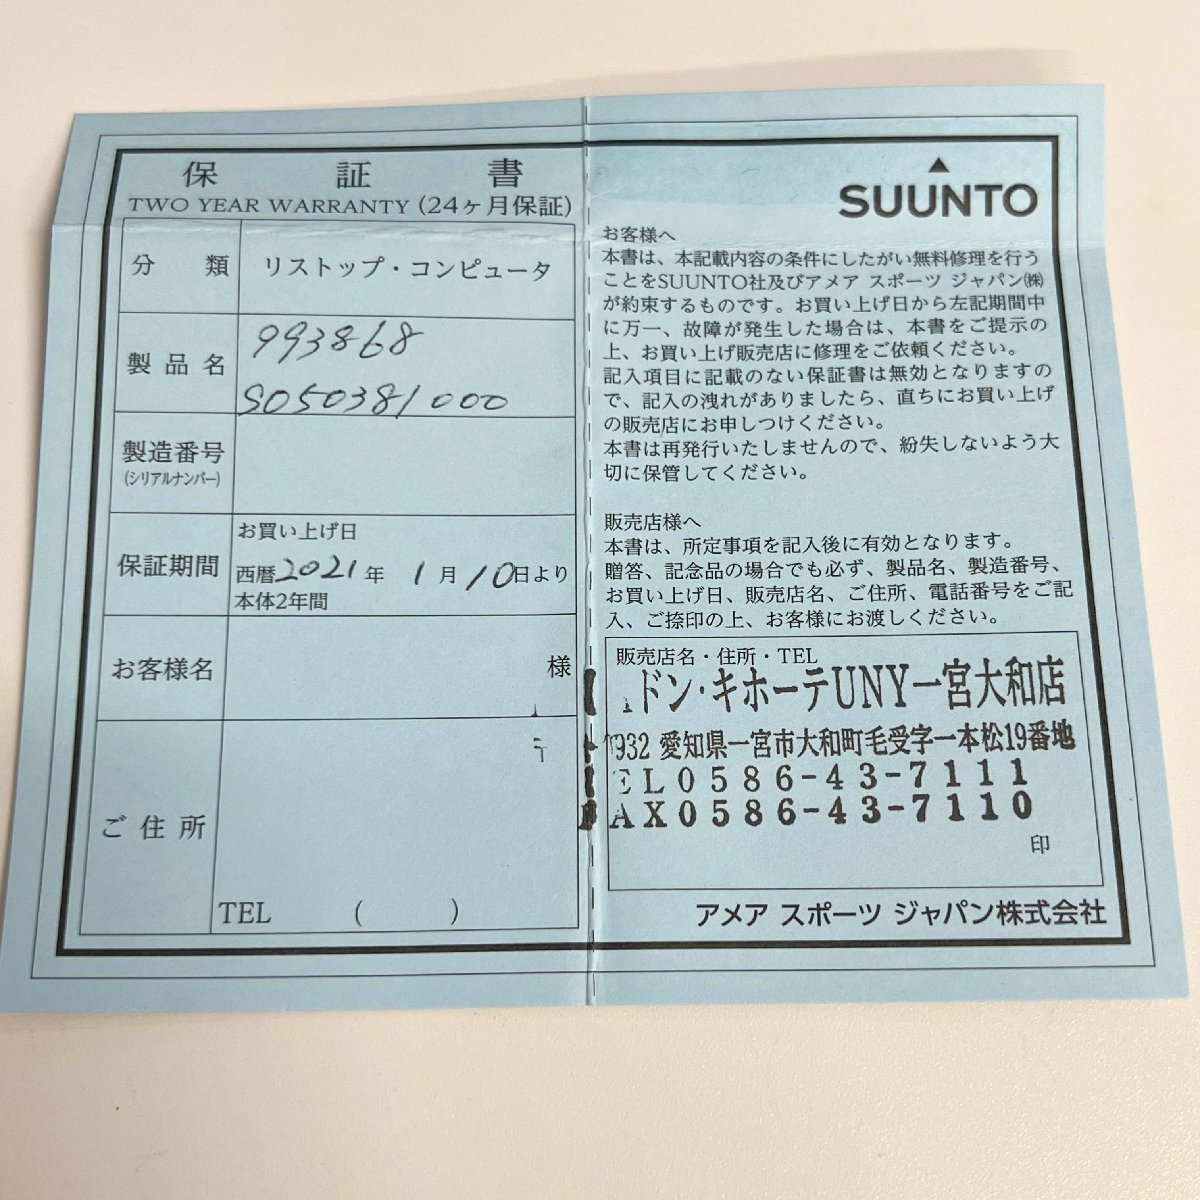 保証書
TWO YEAR WARRANTY (24ヶ月保証)
分類
リストップ・コンピュータ
製品名
993868
SO50381000
製造番号
(シリアルナンバー)
保証期間
お買い上げ日
西暦2021年 1月10日より
本体2年間
お客様名
様
ご住所
TEL ( )
SUUNTO
お客様へ
本書は、本記載内容の条件にしたがい無料修理を行う
ことをSUUNTO社及びアメア スポーツ ジャパン㈱
が約束するものです。お買い上げ日から左記期間中
に万一、故障が発生した場合は、本書をご提示の
上、お買い上げ販売店に修理をご依頼ください。
記入項目に記載のない保証書は無効となりますの
で、記入の洩れがありましたら、直ちにお買い上げ
の販売店にお申しつけください。
本書は再発行いたしませんので、紛失しないよう大
切に保管してください。
販売店様へ
本書は、所定事項を記入後に有効となります。
贈答、記念品の場合でも必ず、製品名、製造番号、
お買い上げ日、販売店名、ご住所、電話番号をご記
入、ご捺印の上、お客様にお渡しください。
販売店名・住所・TEL
ドン・キホーテUNY一宮大和店
932 愛知県一宮市大和町毛受字一本松19番地
TEL0586-43-7111
FAX0586-43-7110
印
アメア スポーツ ジャパン株式会社